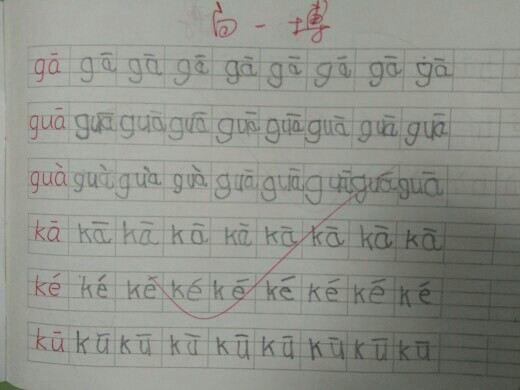 gā gā gā gā gā gā gā gā gā
guā guā guā guā guā guā guā guā guā
guà guà guà guà guā guā guā guā guā
kā kā kā kā kā kā kā kā kā
ké ké kě ké ké ké ké ké ké
kū kū kū kū kū kū kū kū kū